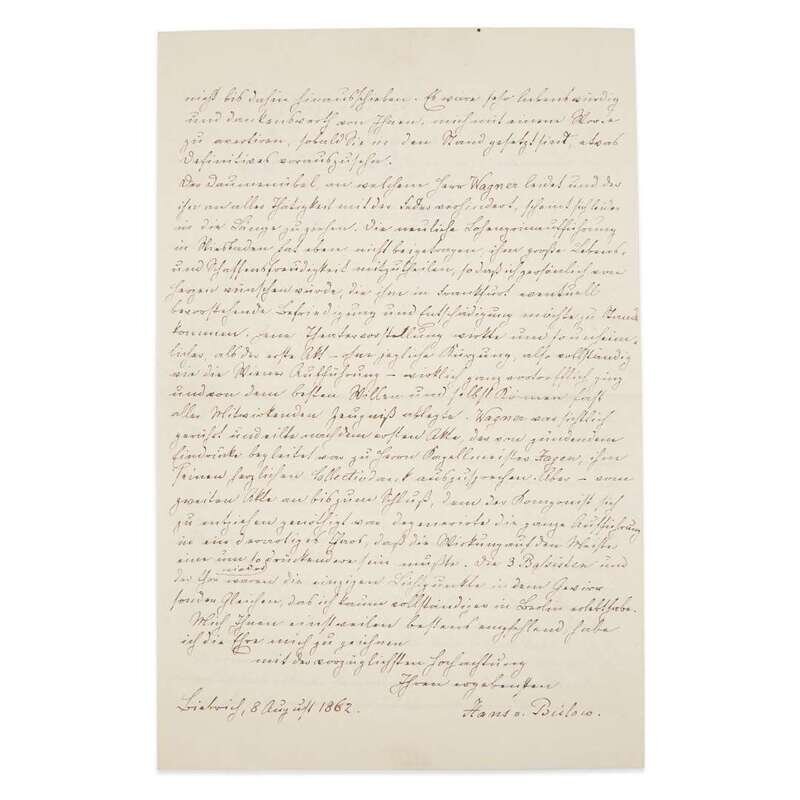 nicht bis dahin hinausschieben. Es wäre sehr liebenswürdig
und dankenswerth von Ihnen, mich mit einem Worte
zu avertiren, sobald Sie in den Stand gesetzt sind, etwas
Definitives vorauszusehn.
Das Daumenübel, an welchem Herr Wagner leidet und das
ihn an aller Thätigkeit mit der Feder verhindert, scheint sich leider
in die Länge zu ziehen. Die neuliche Lohengrinaufführung
in Wiesbaden hat eben nicht beigetragen, ihm große Lebens-
und Schaffensfreudigkeit mitzutheilen, so daß ich persönlich von
Herzen wünschen würde, die ihm in Frankfurt eventuell
bevorstehende Befriedigung und Entschädigung möchte zu Stande
kommen. Jene Theatervorstellung wirkte um so unheim-
licher, als der erste Akt – ohne jegliche Kürzung, also vollständig
wie die Wiener Aufführung – wirklich ganz vortrefflich ging
und von dem besten Willen und selbst Können fast
aller Mitwirkenden Zeugniß ablegte. Wagner war sichtlich
gerührt und eilte nach dem ersten Akte, der von zündendem
Eindrucke begleitet war zu Herrn Kapellmeister Hagen, ihm
seinen herzlichen Collectivdank auszusprechen. Aber – vom
zweiten Akte an bis zum Schluß, dem der Komponist sich
zu entziehen genöthigt war degenerirte die ganze Aufführung
in ein derartiges Chaos, daß die Wirkung auf den Meister
eine um so drückendere sein mußte. Die 3 und
der Chor waren die einzigen Lichtpunkte in dem Gewirr
sonder Gleichen, das ich kaum vollständiger in Berlin erlebt habe.
Mich Ihnen einstweilen bestens empfehlend habe
ich die Ehre mich zu zeichnen
mit der vorzüglichsten Hochachtung
Ihren ergebensten
Biebrich, 8 August 1862. Hans v. Bülow.